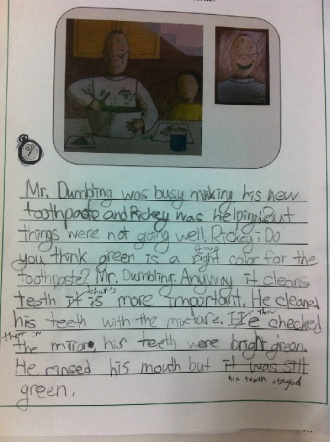 Mr. Dumbling was busy making his new
toothpaste and Rickey was helping. But
things were not going well. Rickey: Do
you think green is a right color for the
toothpaste? Mr. Dumbling: Anyway it cleans
teeth it is more important. He cleaned
that's
his teeth with the mixture. He checked
then
them in
the mirror his teeth were bright green.
He rinsed his mouth but it was still
his teeth stayed
green.